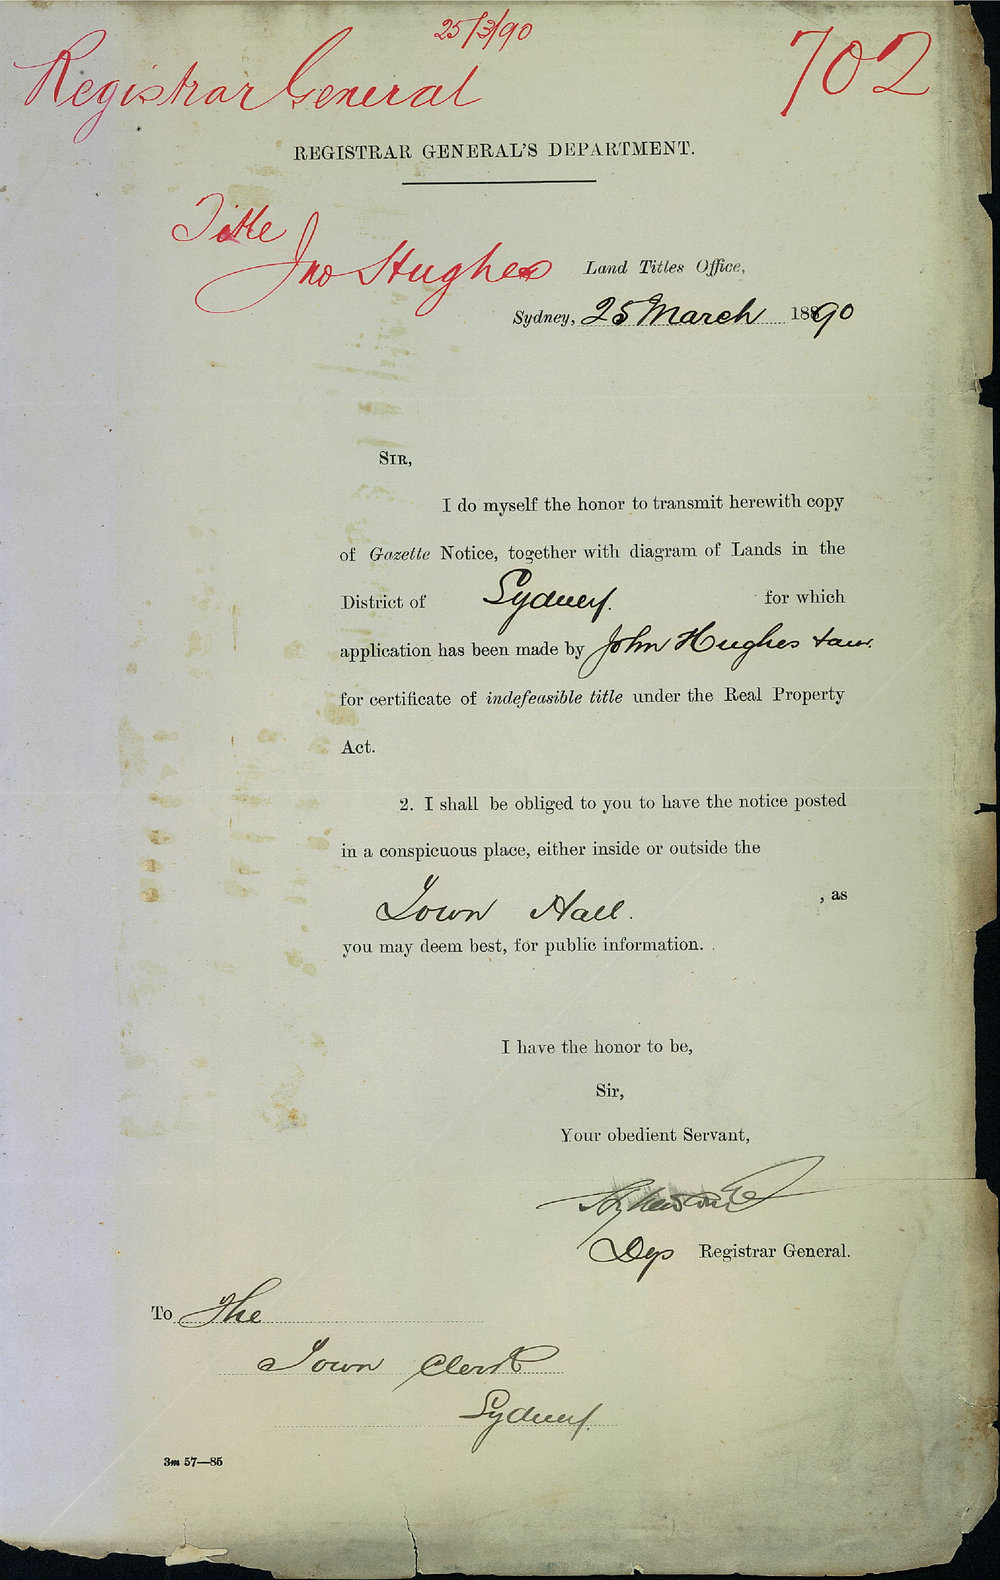 25/3/90
Registrar General
702
REGISTRAR GENERAL'S DEPARTMENT.
Title
Jno Hughes
Land Titles Office,
Sydney, 25 March 1890
SIR,
I do myself the honor to transmit herewith copy
of Gazette Notice, together with diagram of Lands in the
District of Sydney. for which
application has been made by John Hughes
for certificate of indefeasible title under the Real Property
Act.
2. I shall be obliged to you to have the notice posted
in a conspicuous place, either inside or outside the
Town Hall. , as
you may deem best, for public information.
I have the honor to be,
Sir,
Your obedient Servant,
Dep Registrar General.
To The
Town Clerk
Sydney.
3m 57—85